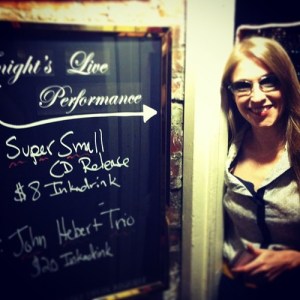 night's Live
Performance
Super Small
CD Release
$8 Inkadrink
John Hebert Trio
$20 Inkadrink